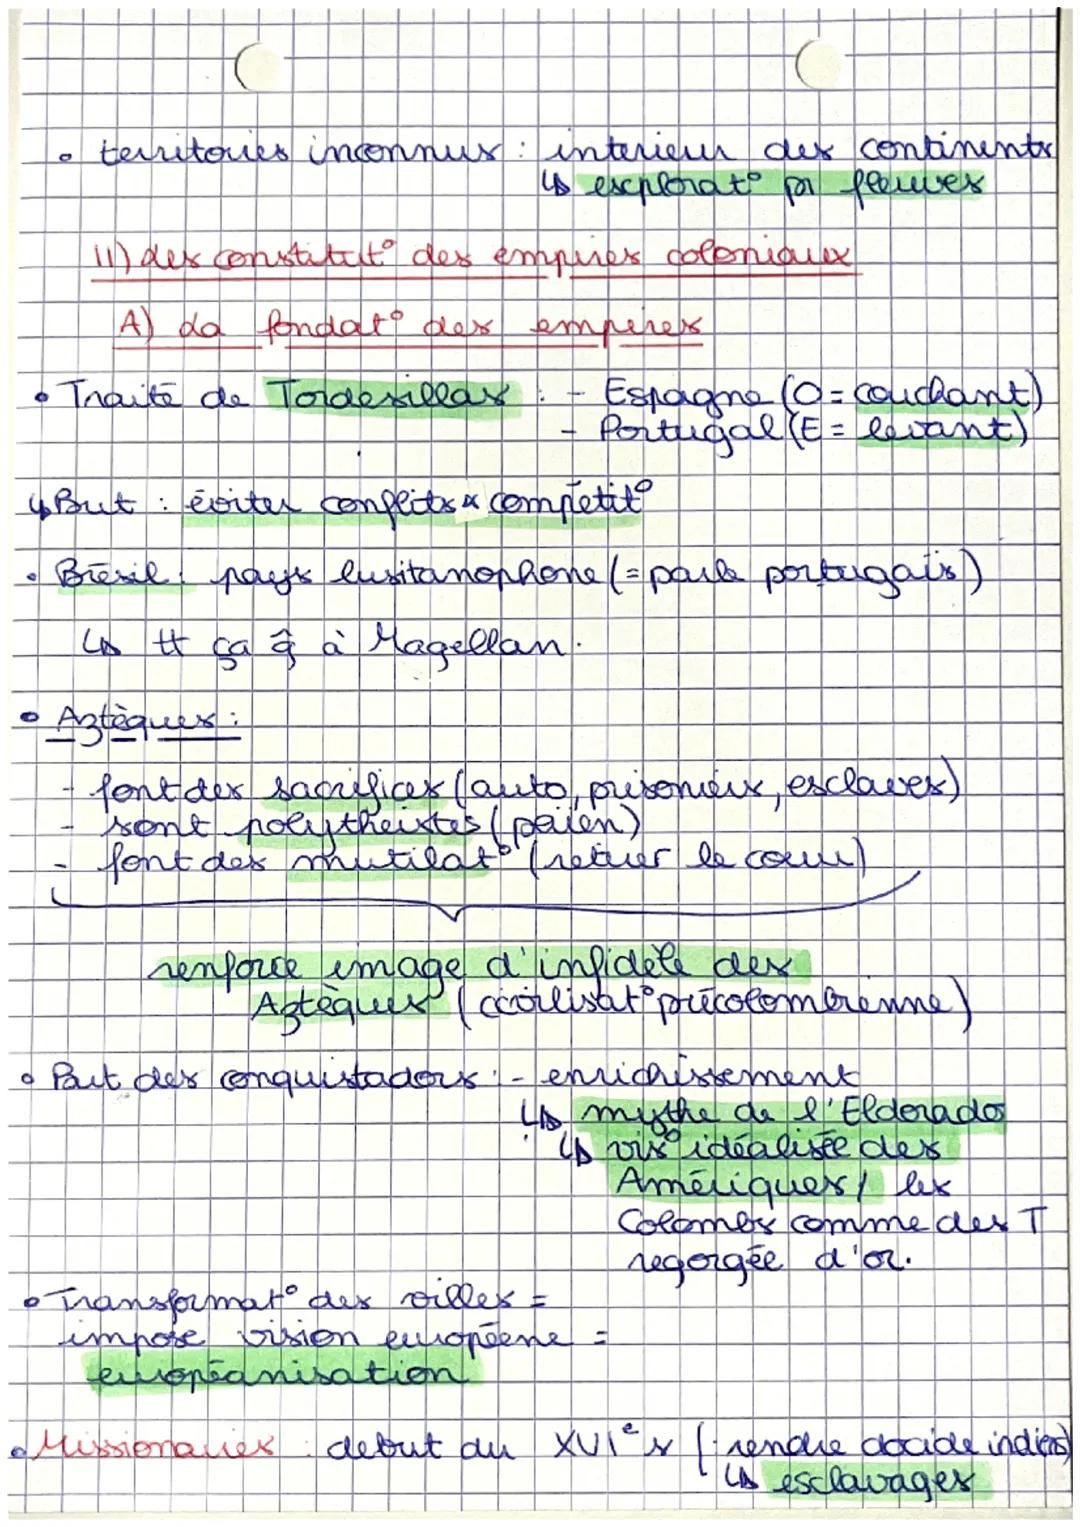 • territoires inconnus : interieur des continents
↳ explorat° par fleuves
II) Les constitut° des empires coloniaux
A) La fondat° des empires
• Traité de Tordesillas : - Espagne (O = couchant)
- Portugal (E = levant)
↳ But : éviter conflits & competit°
• Brésil : pays lusitanophone (= parle portugais)
↳ tt ça ĝ à Magellan.
• Aztèques :
- font des sacrifices (auto, prisoniers, esclaves)
- sont polytheistes (païen)
- font des mutilat° (retirer le cœur)
renforce image d'infidèle des
Aztèques (civilisat° précolombienne)
• But des conquistadors : - enrichissement
↳ mythe de l'Eldorados
↳ vis° idéalisée des
Amériques / les
Colombs comme des T
regorgée d'or.
• Transformat° des villes =
impose vision européene =
européanisation
• Missionaires : debut du XVIe s (: rendre docide indiens)
↳ esclavages